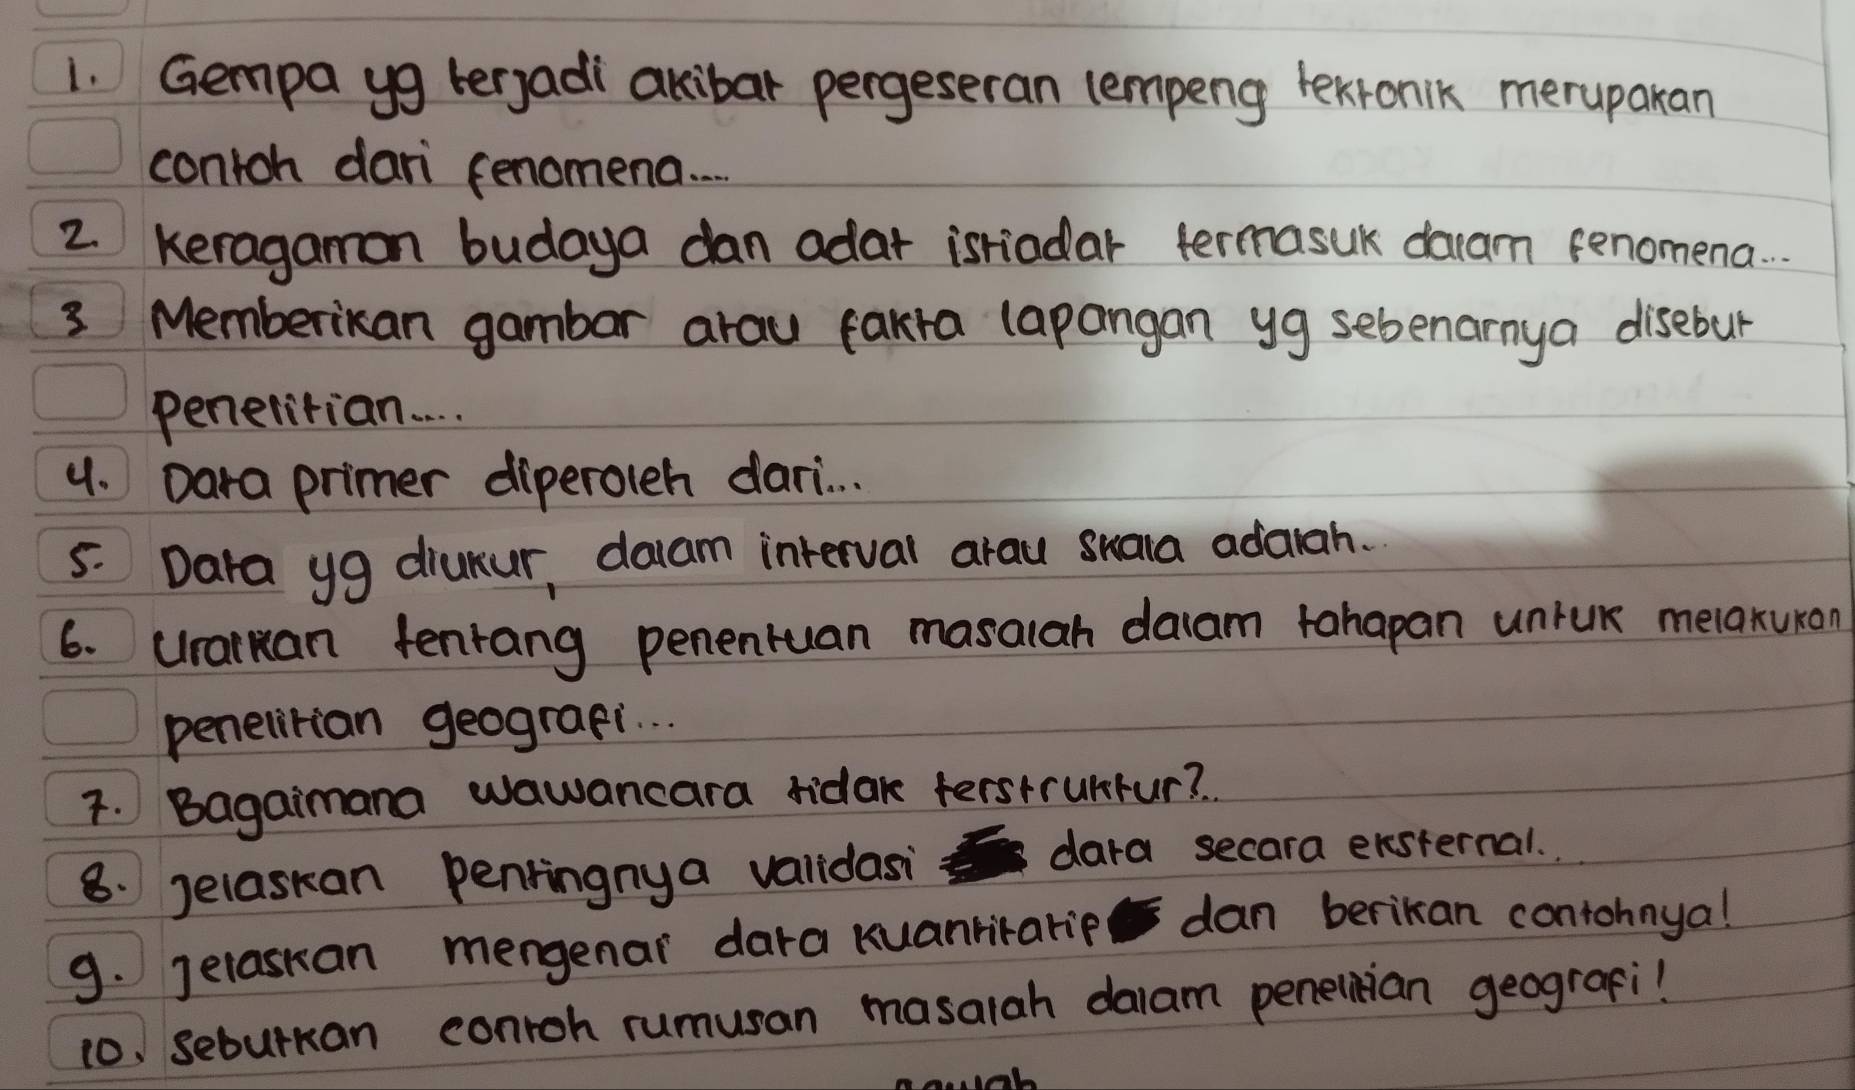 1. Gempa yg terjadi akibat pergeseran lempeng tektonik merupakan
contoh dari fenomena....
2. Keragaman budaya dan adat istiadat termasuk dalam fenomena...
3 Memberikan gambar atau fakta lapangan yg sebenarnya disebut
penelitian....
4. Data primer diperoleh dari...
5. Data yg diukur, dalam interval atau skala adalah..
6. Uraikan tentang penentuan masalah dalam tahapan untuk melakukan
penelitian geografi...
7. Bagaimana wawancara tidak terstruktur?..
8. Jelaskan pentingnya validasi data secara eksternal...
9. Jelaskan mengenai data kuantitatif dan berikan contohnya!
10. Sebutkan contoh rumusan masalah dalam penelitian geografi!